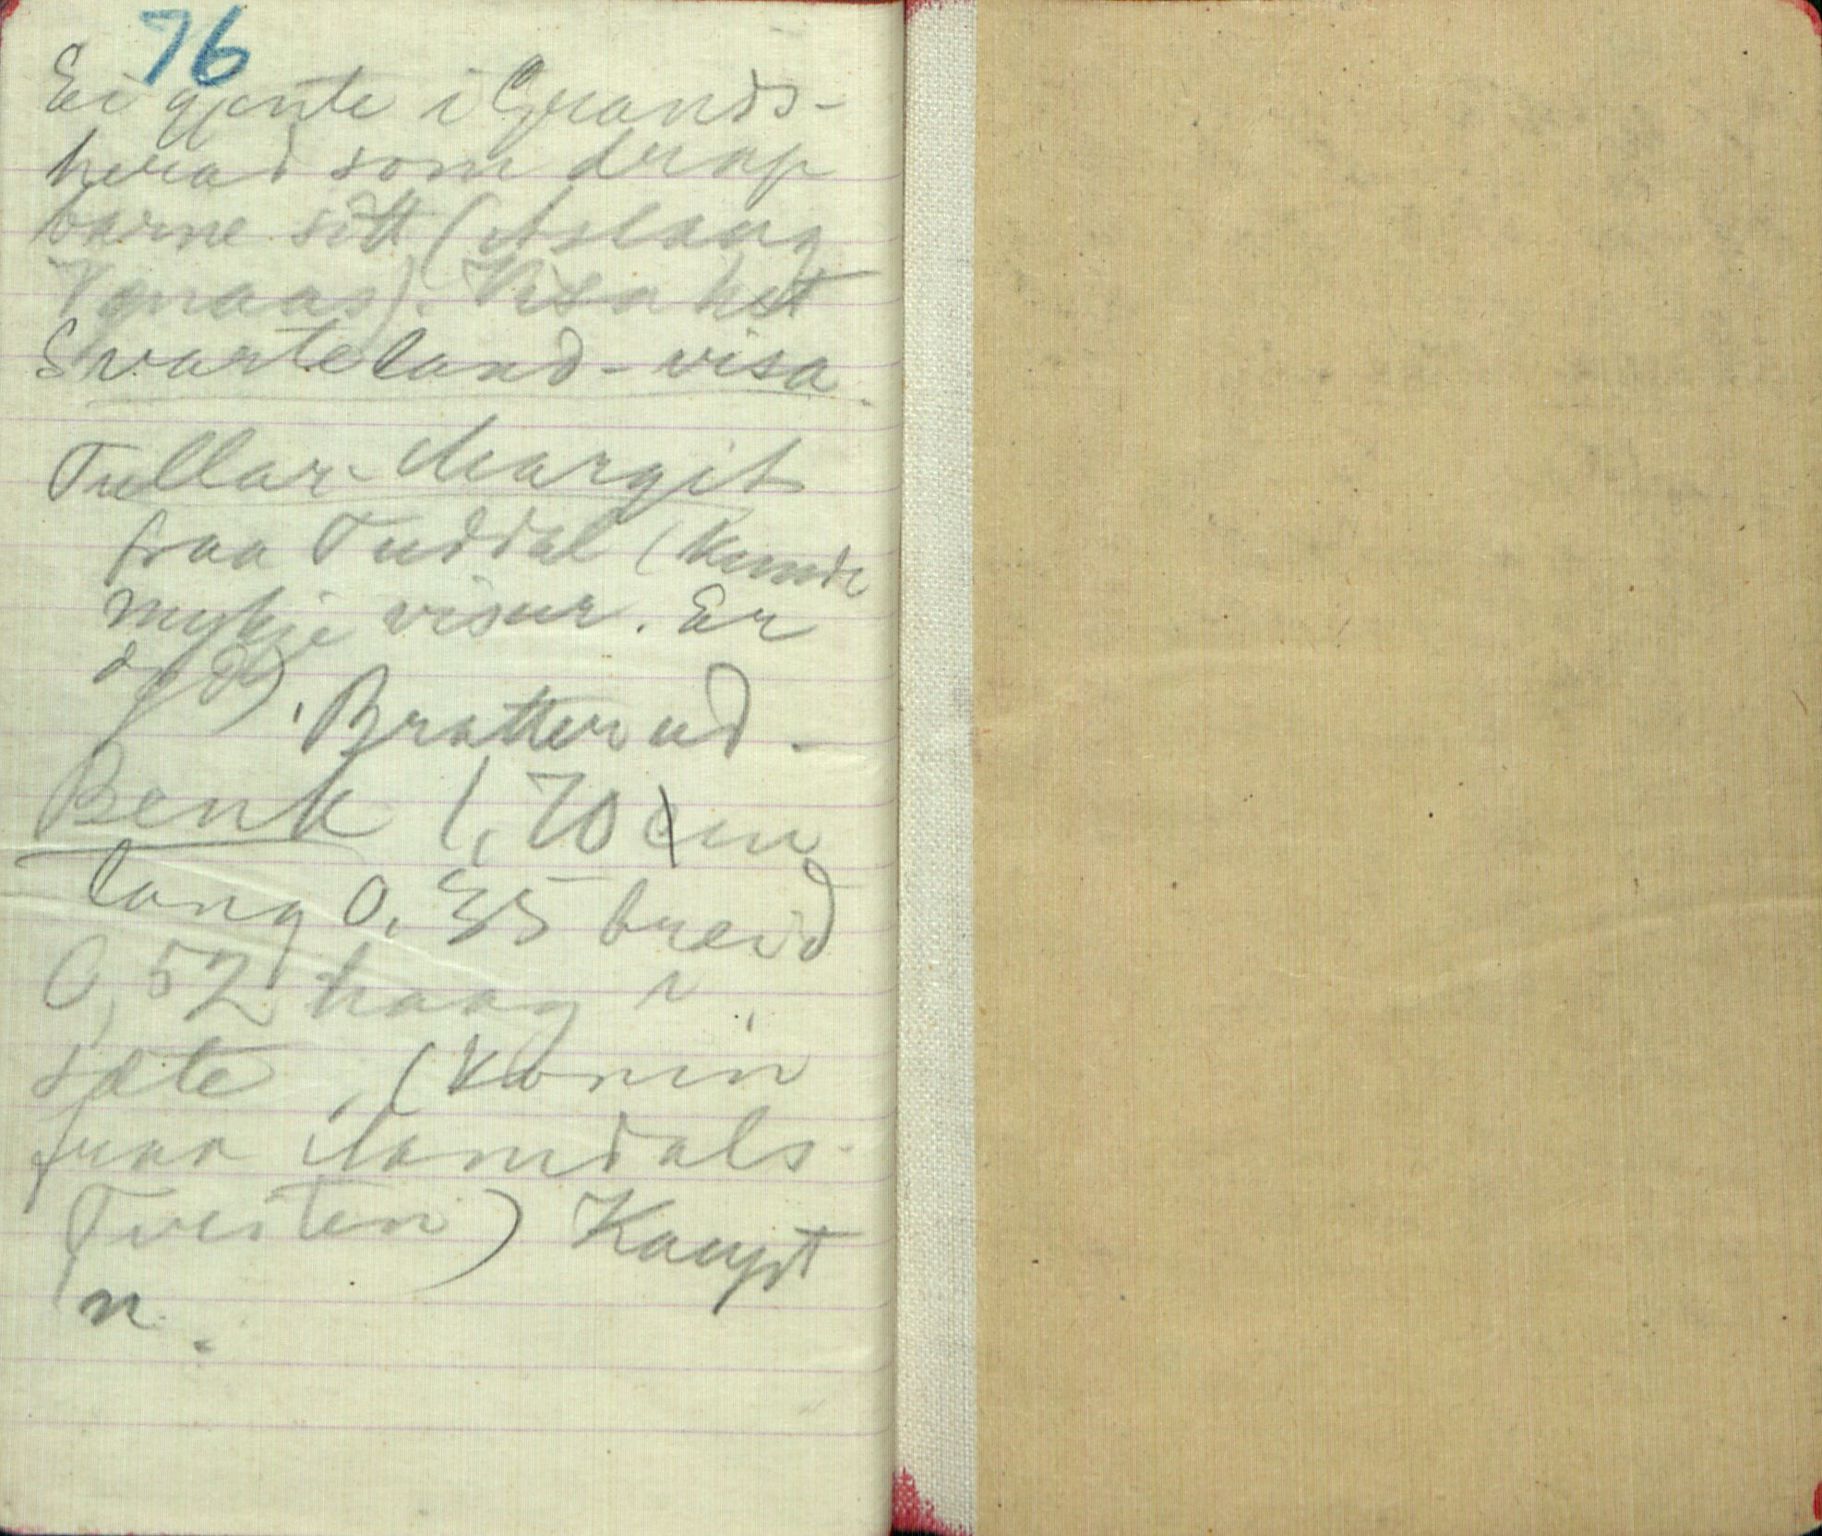 76
Ei gjente i Grands-
herad som drap
barne sitt (Aslaug
Vgnaas). Visa het
Svarteland-visa.
Tullar-Margit
fraa Tuddal (kunde
mykje visur. Er
Bratterud -
Benk 1,70 cm
lang 0,35 breid
0,52 haag i
sæte. (Komin
fraa Aamdals-
Tveiten) Kaupt
n.